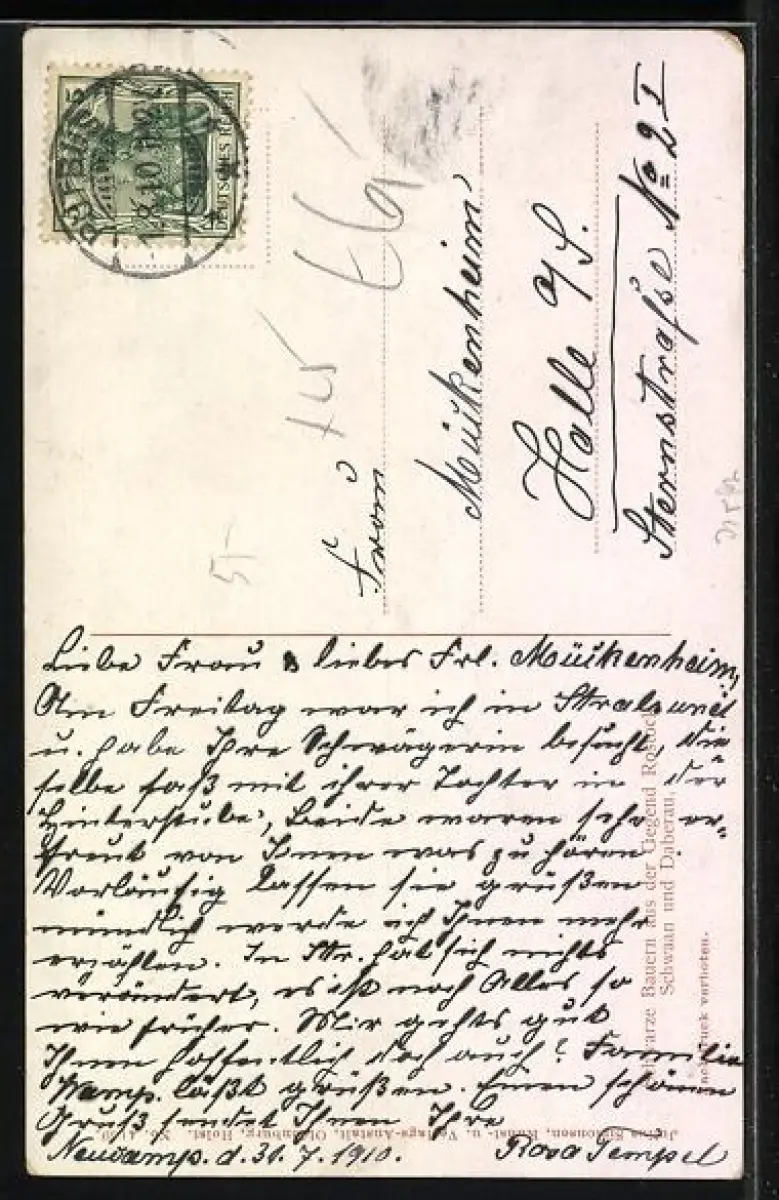 DEUTSCHES REICH
1.8.10
Frau
Mückenheim
Halle a/S.
Sternstraße No 2 I
Liebe Frau & liebes Frl. Mückenheim,
Am Freitag war ich in Stralsund
u. habe Ihre Schwägerin besucht, die
selbe saß mit ihrer Tochter in der
Hinterstube, beide waren sehr er-
freut von Ihnen was zu hören.
Vorläufig lassen sie grüßen
mündlich werde ich Ihnen mehr
erzählen. In Str. hat sich nichts
verändert, es ist noch Alles so
wie früher. Mir gehts gut
Ihnen hoffentlich doch auch? Familie
Wamp. läßt grüßen. Einen schönen
Gruß sendet Ihnen Ihre
Rosa Tempel
Neucamp. d. 31. 7. 1910.
Schwarze Bauern aus der Gegend Rostock
Schwaan und Daberau.
Nachdruck verboten.
Julius Simonsen, Kunst- u. Verlags-Anstalt, Oldenburg, Holst. No.